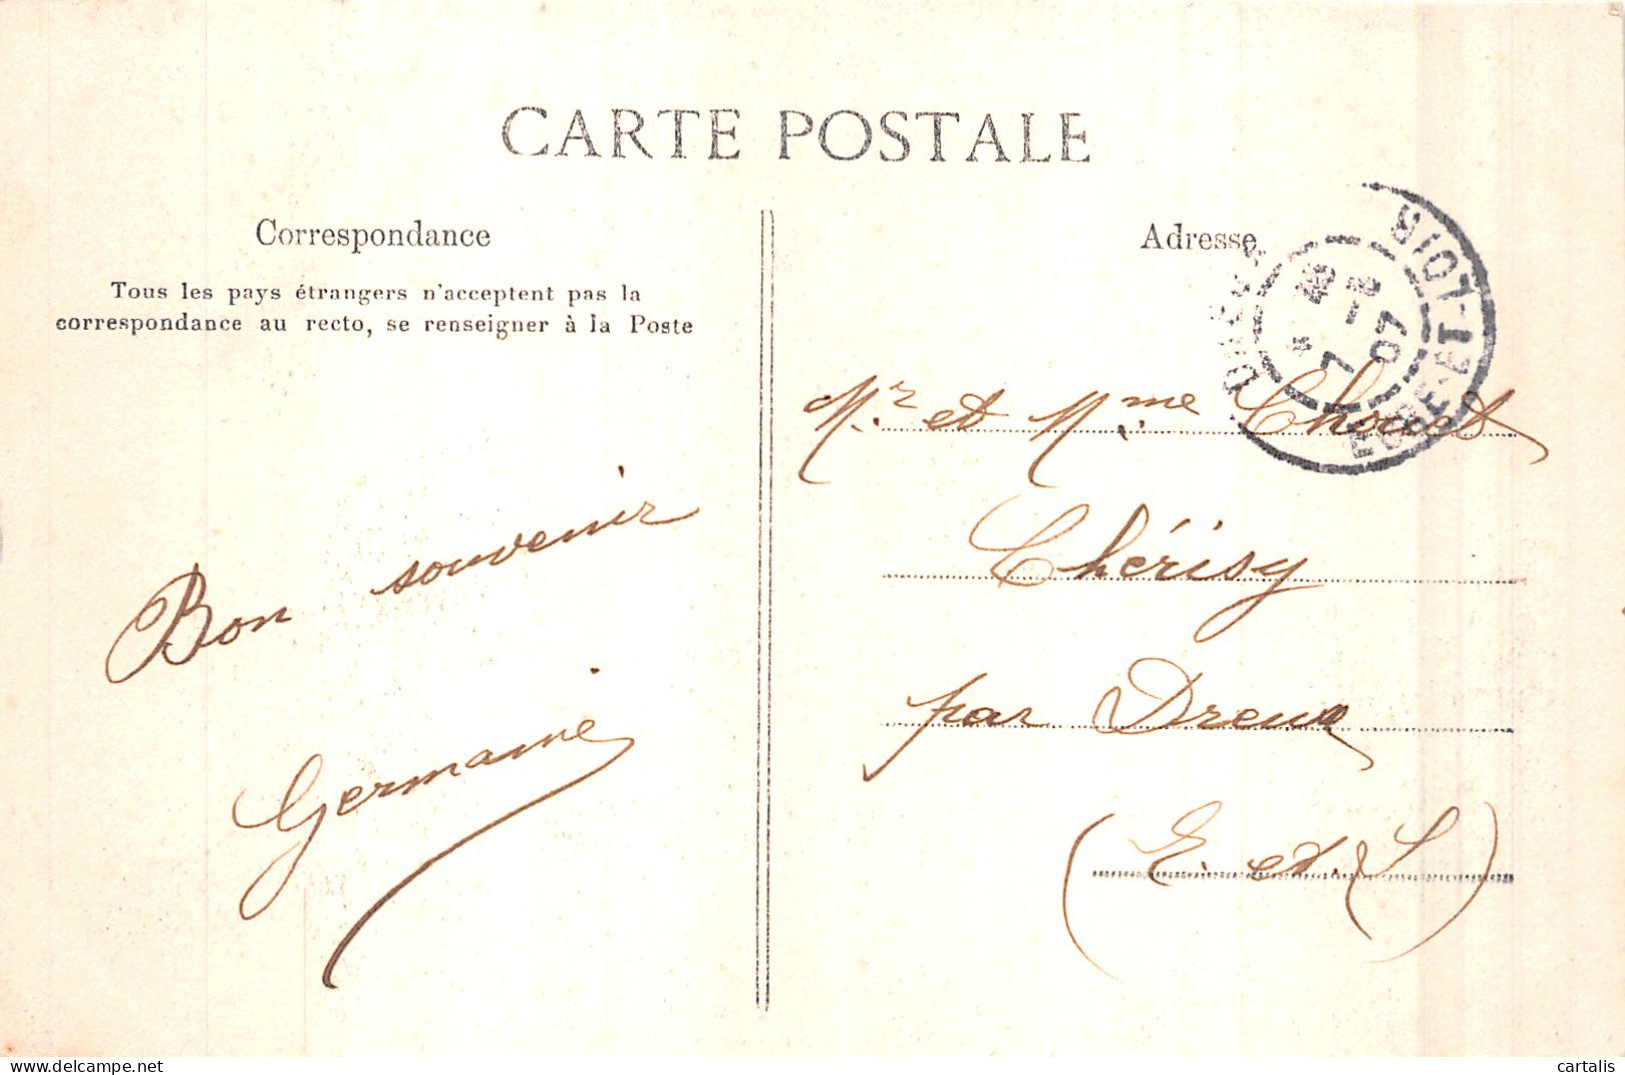 CARTE POSTALE
Correspondance
Tous les pays étrangers n'acceptent pas la
correspondance au recto, se renseigner à la Poste
Bon souvenir
Germaine
Adresse
DREUX
EURE-ET-LOIR
7 07
Mr. et Mme Chouet
Chérisy
par Dreux
(E. et. L)
cartalis